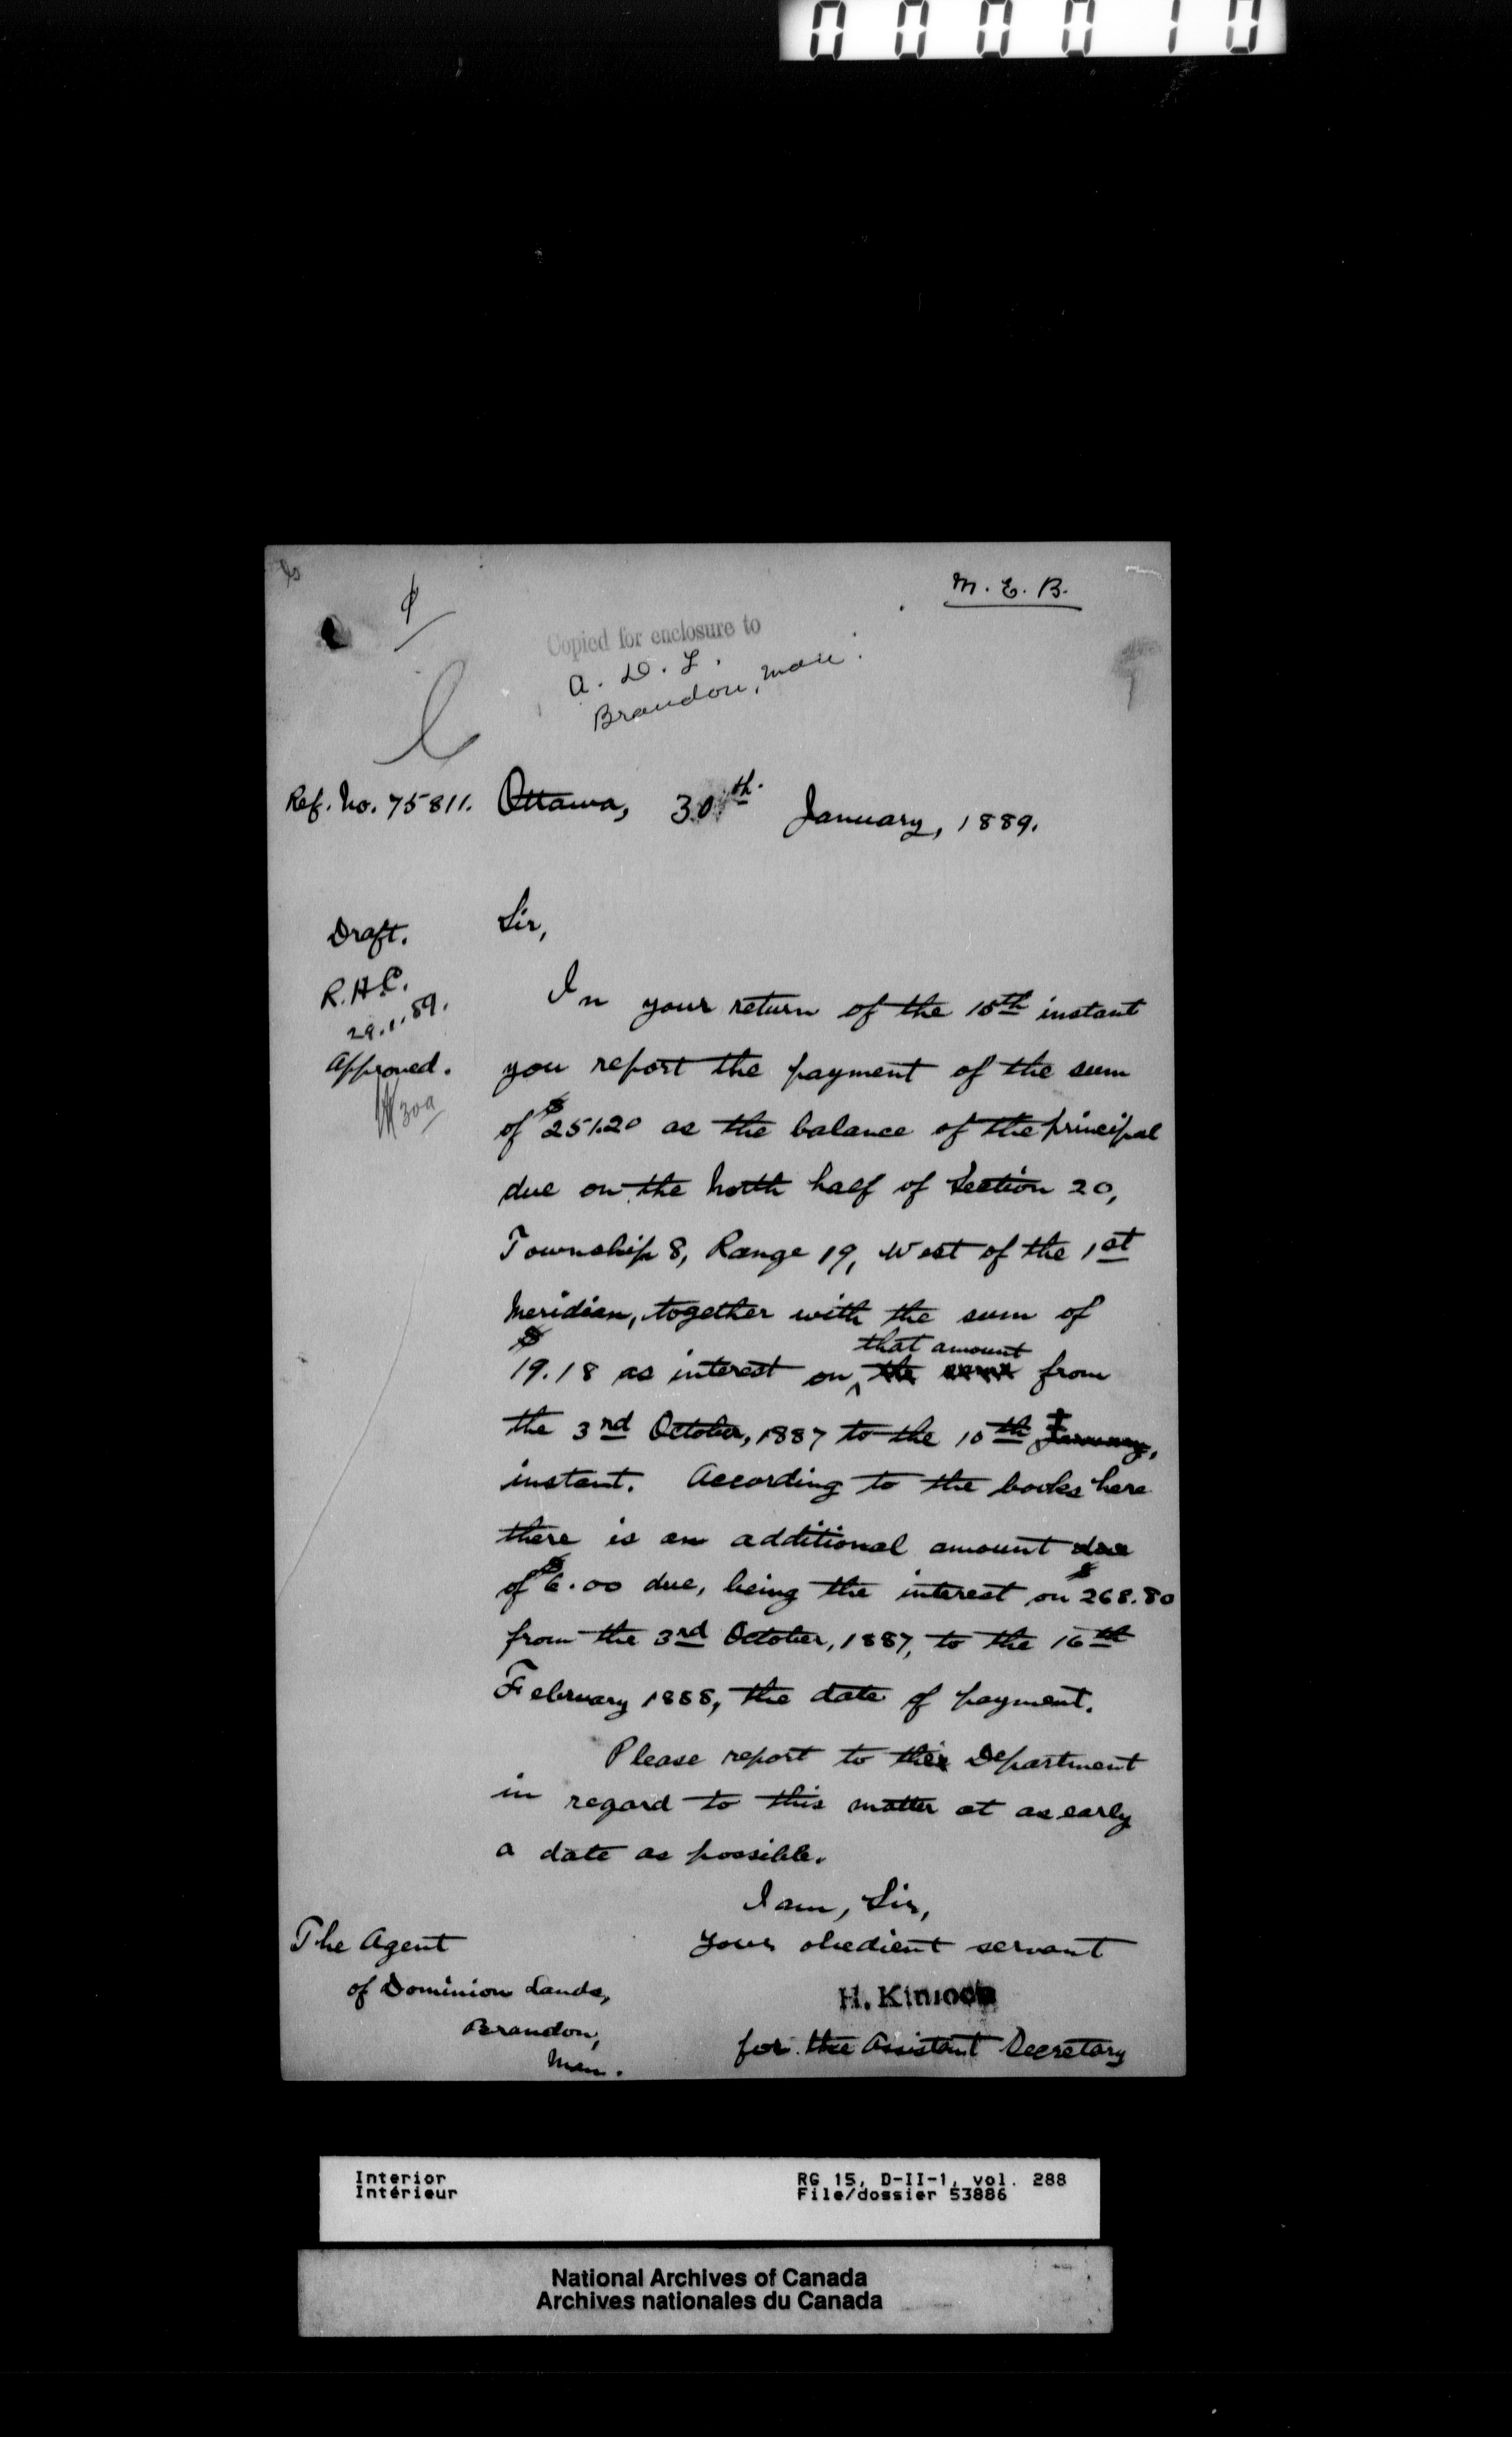 000010
M. E. B.
Copied for enclosure to
A. D. L.
Brandon, Man.
Ref. No. 75811. Ottawa, 30th. January, 1889.
Draft.
R.H.C.
29.1.89.
Approved.
Sir,
In your return of the 15th instant
you report the payment of the sum
of $251.20 as the balance of the principal
due on the North half of Section 20,
Township 8, Range 19, West of the 1st
Meridian, together with the sum of
that amount
$19.18 as interest on the same from
the 3rd October, 1887 to the 10th January,
instant. According to the books here
there is an additional amount due
of $6.00 due, being the interest on $268.80
from the 3rd October, 1887, to the 16th
February 1888, the date of payment.
Please report to the Department
in regard to this matter at as early
a date as possible.
I am, Sir,
Your obedient servant
H. Kinloch
for the Assistant Secretary
The Agent
of Dominion Lands,
Brandon,
Man.
Interior
Intérieur
RG 15, D-II-1, vol. 288
File/dossier 53886
National Archives of Canada
Archives nationales du Canada